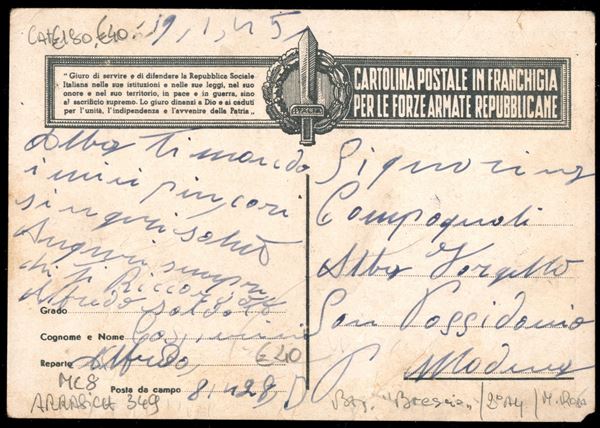 CAT €130, €40
9, 1, 45,
" Giuro di servire e di difendere la Repubblica Sociale
Italiana nelle sue istituzioni e nelle sue leggi, nel suo
onore e nel suo territorio, in pace e in guerra, sino
al sacrificio supremo. Lo giuro dinanzi a Dio e ai caduti
per l'unità, l'indipendenza e l'avvenire della Patria „
ITALIA
CARTOLINA POSTALE IN FRANCHIGIA
PER LE FORZE ARMATE REPUBBLICANE
Alba ti mando
i miei più cari
singeri saluti
Auguri
chi ti
Alfredo
Signorina
Compagnoli
Alba Vorgetto
San Possidonio
P Modena
Grado Soldo
Cognome e Nome
Reparto Alfredo, €40
Posta da campo 8,128, D
MC8
ARRASICH 349
"Brescia" / 2° / M. Rosa